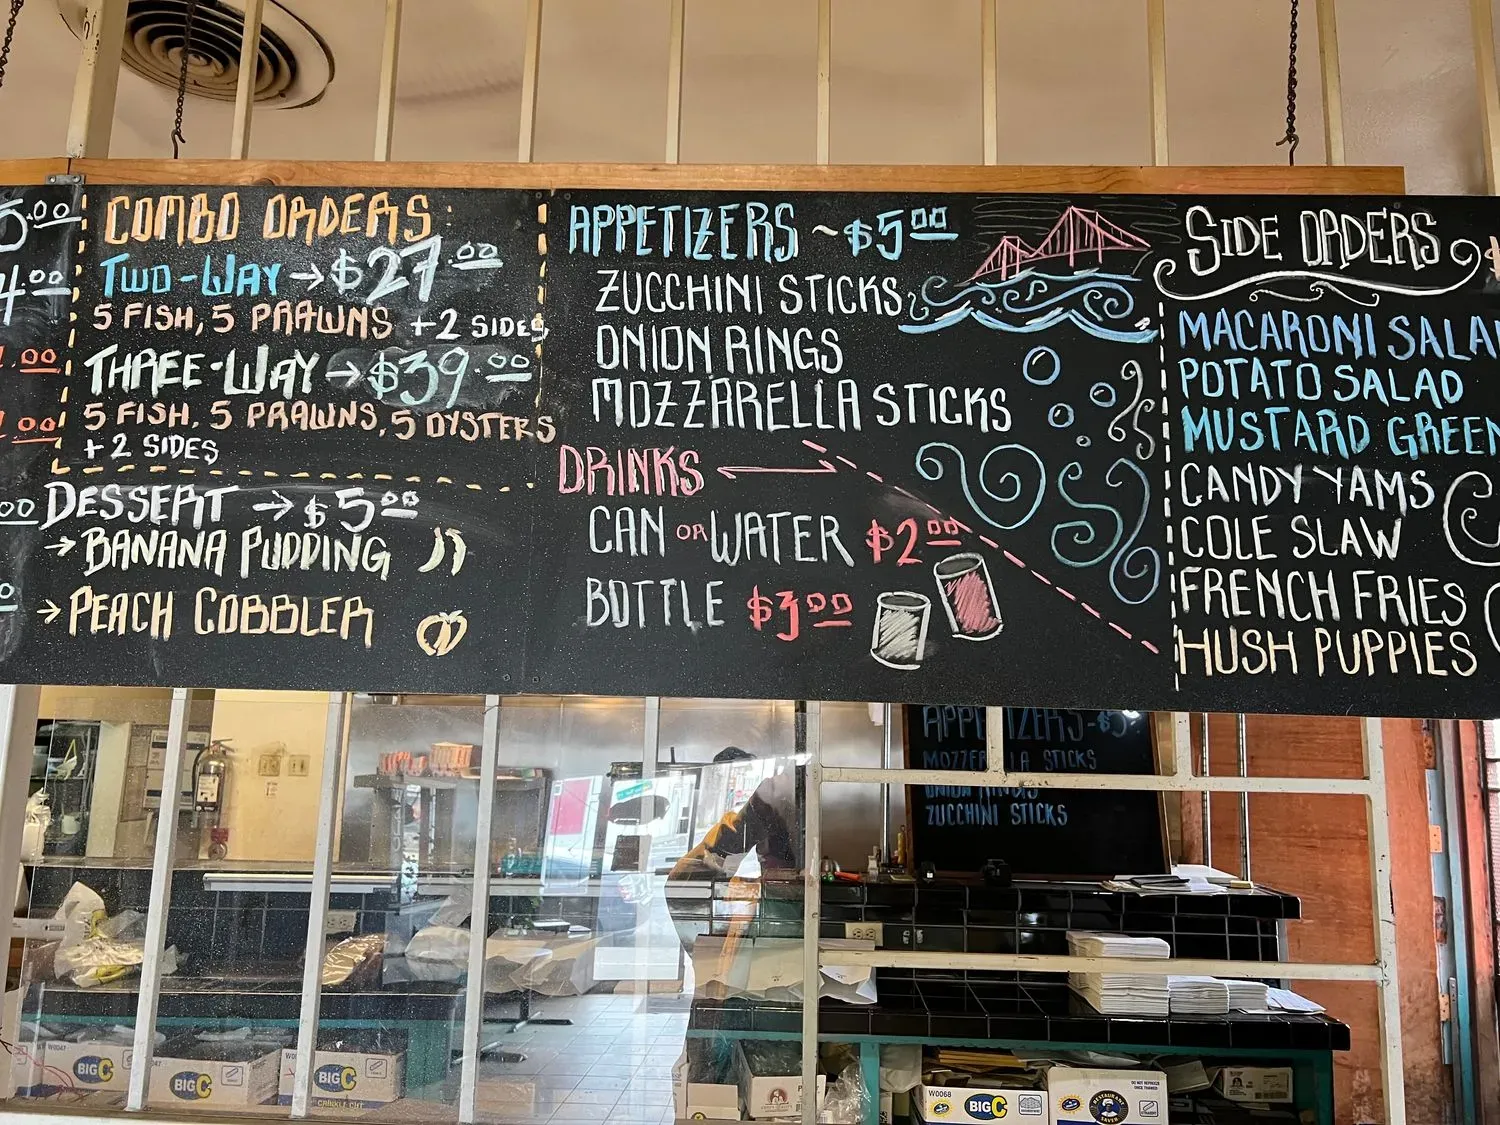 COMBO ORDERS:
TWO-WAY → $27.00
5 FISH, 5 PRAWNS +2 SIDES
THREE-WAY → $39.00
5 FISH, 5 PRAWNS, 5 OYSTERS
+2 SIDES
DESSERT → $5.00
→ BANANA PUDDING
→ PEACH COBBLER
APPETIZERS ~ $5.00
ZUCCHINI STICKS
ONION RINGS
MOZZARELLA STICKS
DRINKS
CAN OR WATER $2.00
BOTTLE $3.00
SIDE ORDERS
MACARONI SALA
POTATO SALAD
MUSTARD GREEN
CANDY YAMS
COLE SLAW
FRENCH FRIES
HUSH PUPPIES
STICKS
ZUCCHINI STICKS
BIG C
BIG C
BIG C
CRINKLE CUT
W0068
BIG C